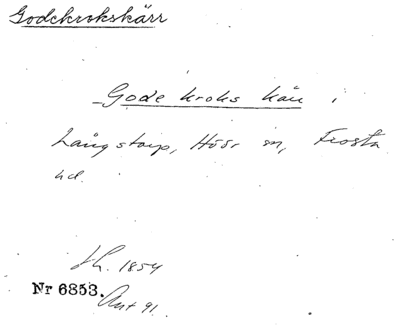 Godekrokskärr
Gode kroks kärr i
Långstorp, Höör sn, Frosta
hd.
Sk. 1854
Nr 6853.
Ant 91.